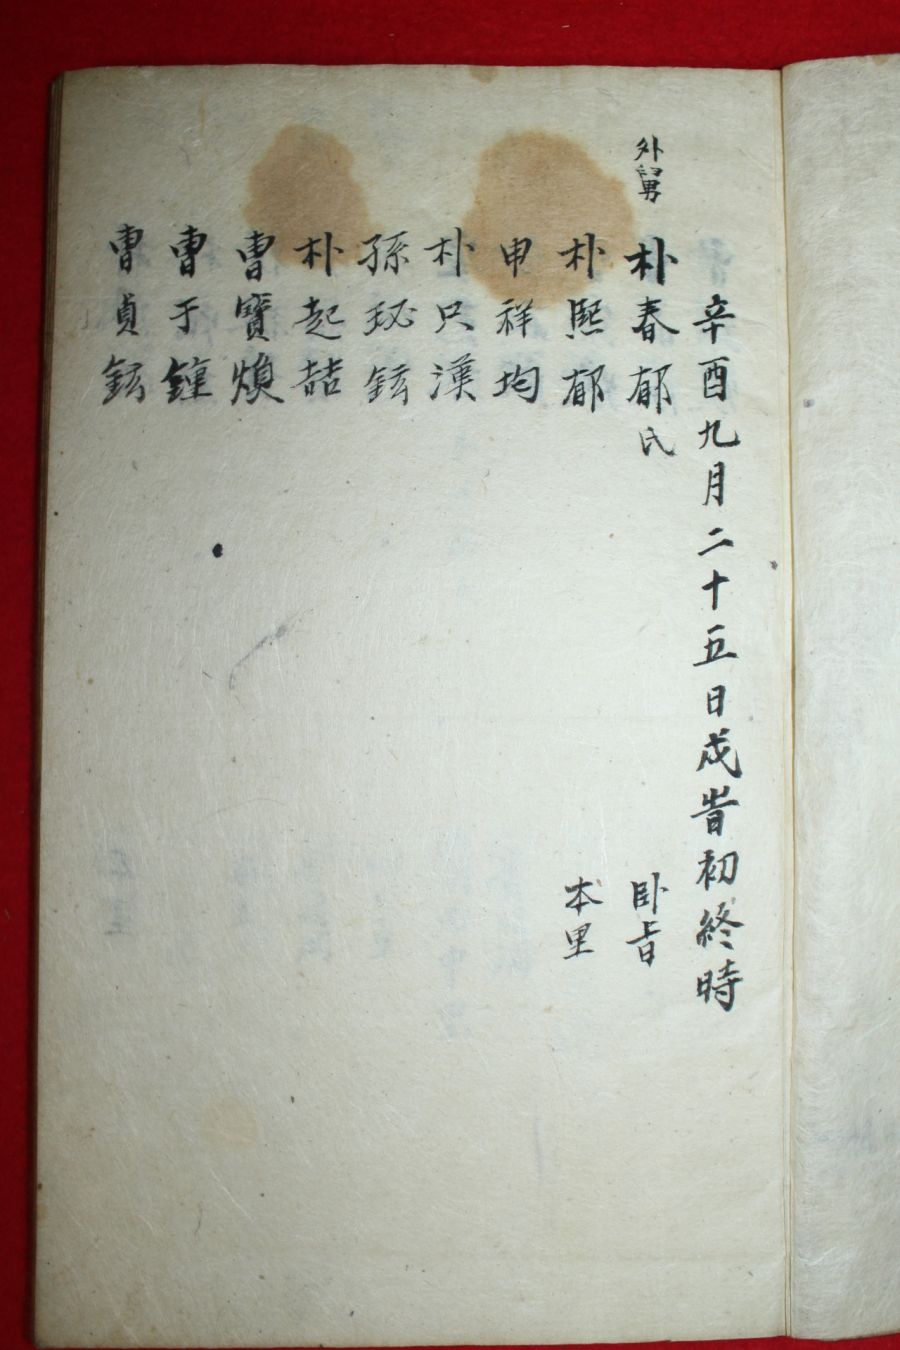 辛酉九月二十五日戌時初終時
外舅 朴春郁氏 卧旨
朴熙郁 本里
申祥均
朴只漢
孫珌鉉
朴起喆
曺寶煥
曺于鍾
曺貞鉉